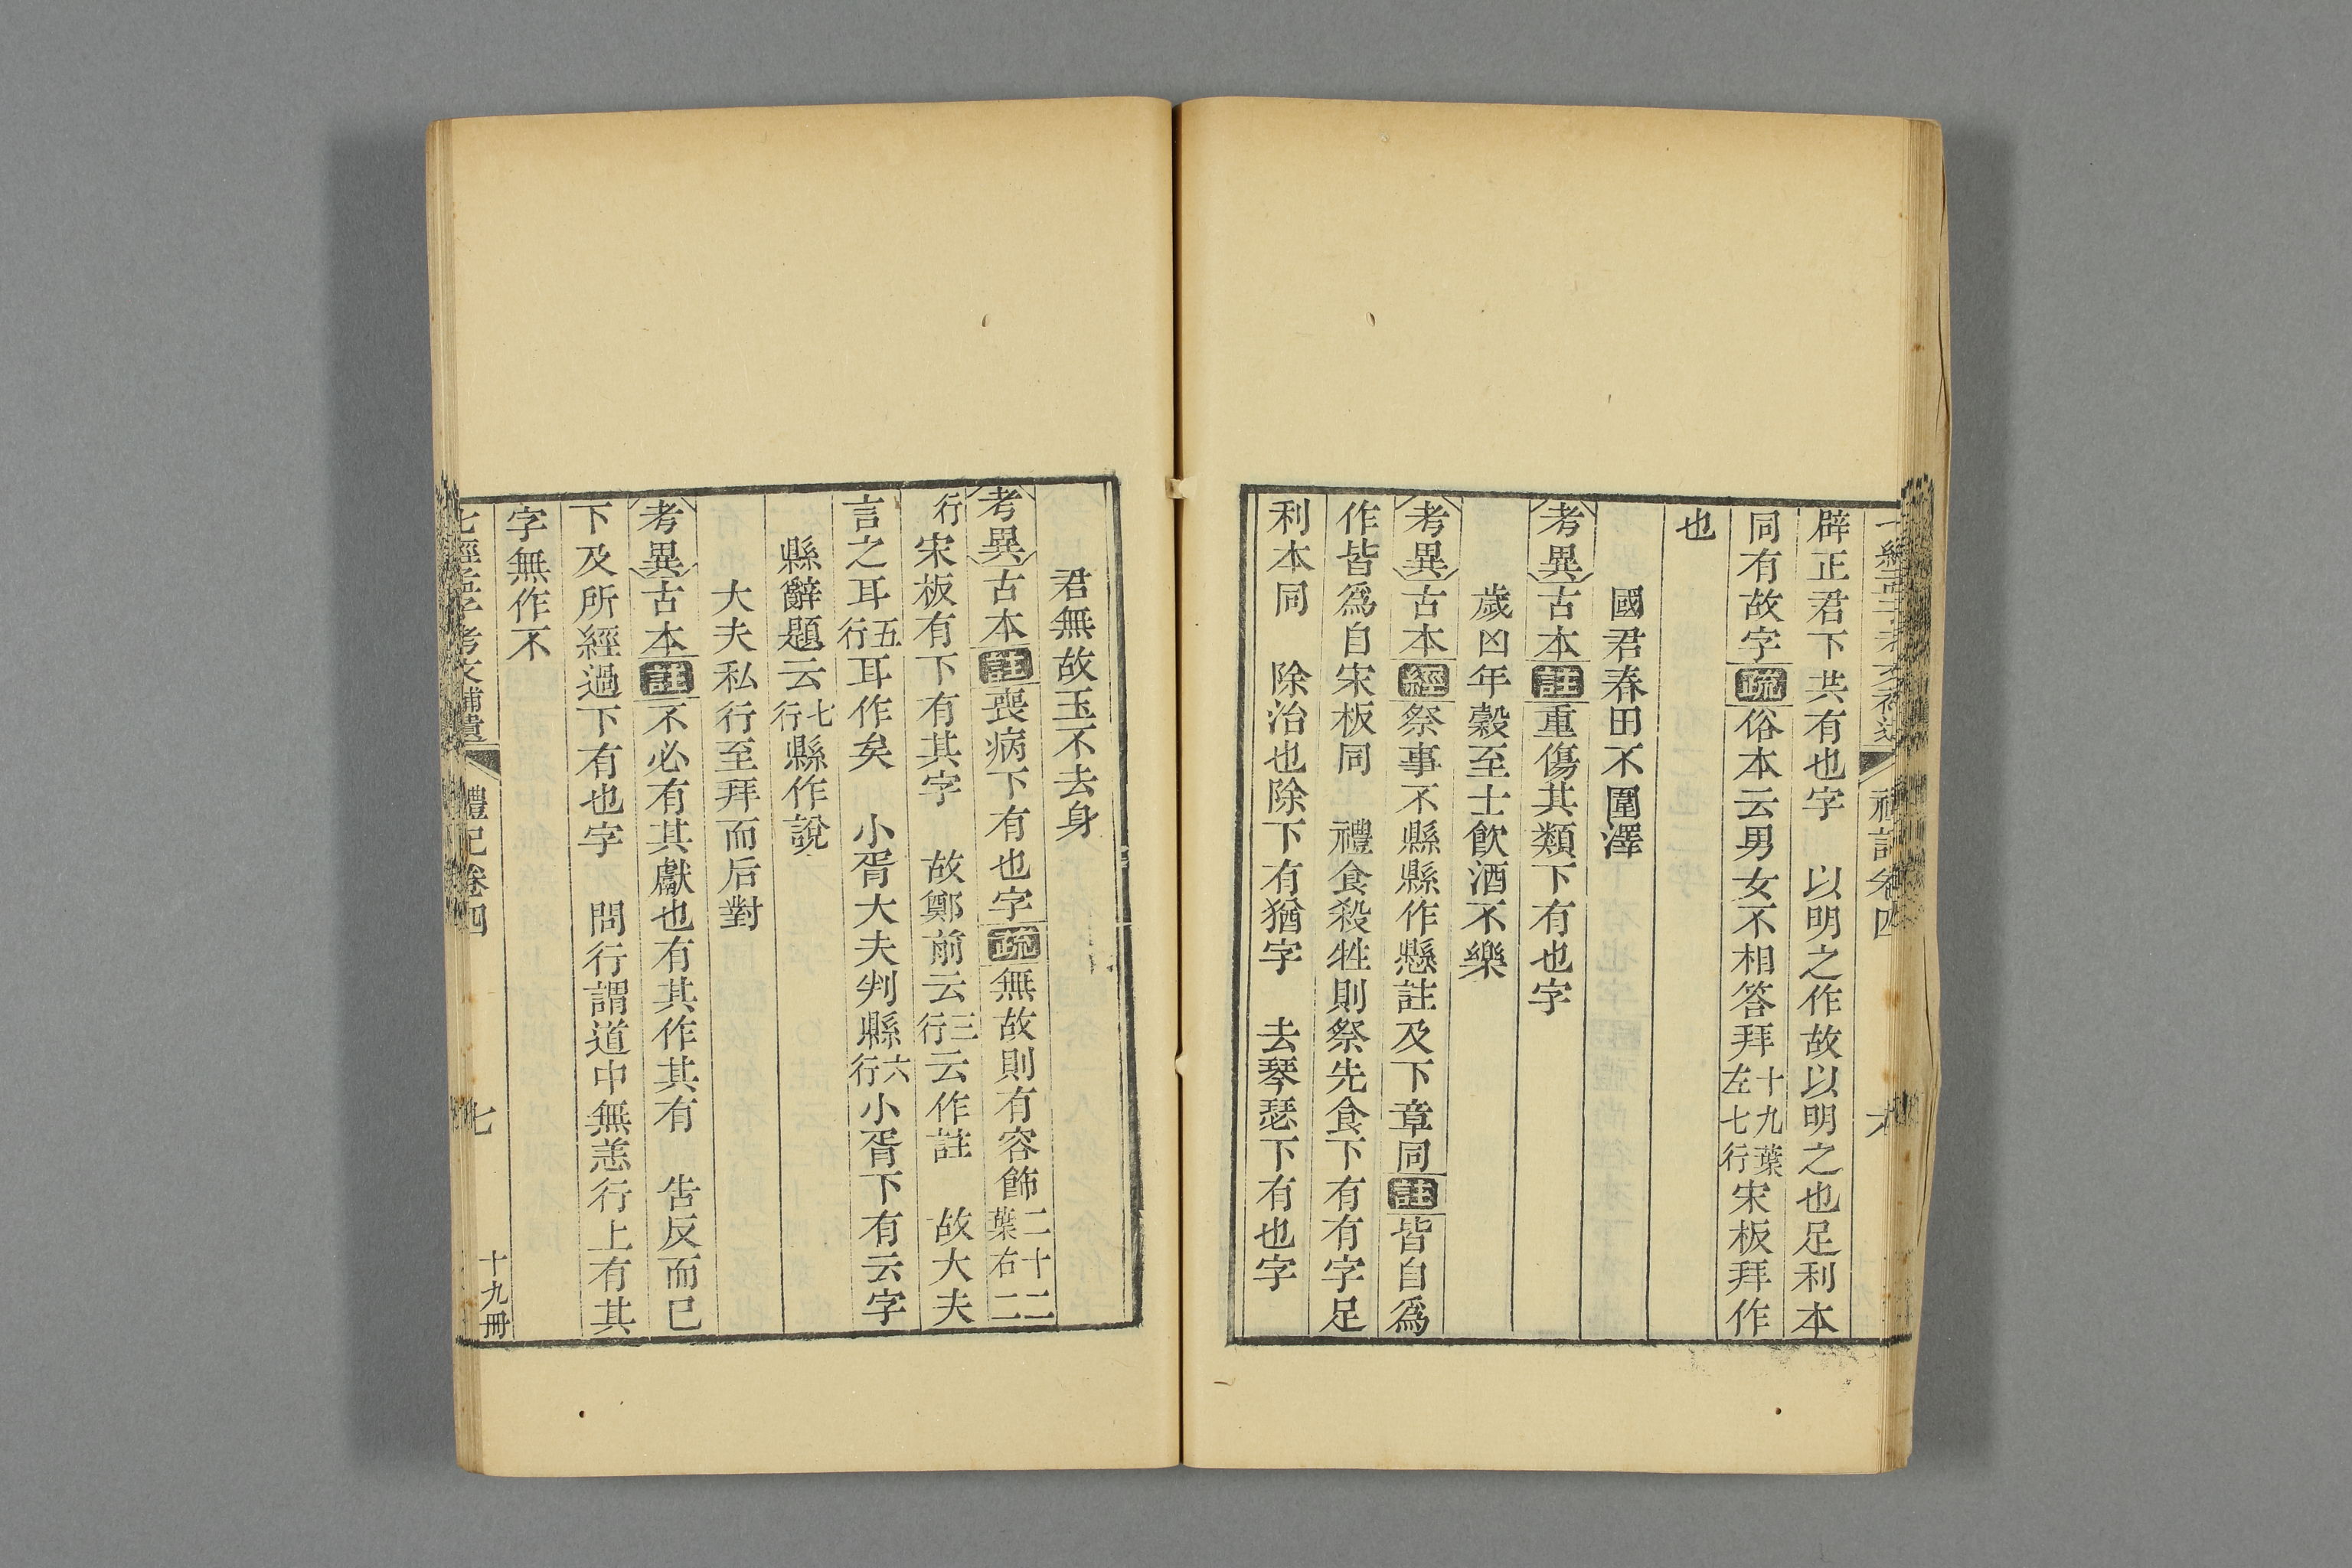 七經孟子考文補遺 禮記卷四 六
辟正君下共有也字 以明之作故以明之也足利本
同有故字疏俗本云男女不相答拜十九葉左七行宋板拜作
也
國君春田不圍澤
考異古本註重傷其類下有也字
歲凶年穀至士飲酒不樂
考異古本經祭事不縣縣作懸註及下章同註皆自爲
作皆爲自宋板同 禮食殺牲則祭先食下有有字足
利本同 除治也除下有猶字 去琴瑟下有也字
君無故玉不去身
考異古本註喪病下有也字疏無故則有容飾二十二葉右二
行宋板有下有其字 故鄭前云三行云作註 故大夫
言之耳五行耳作矣 小胥大夫判縣六行小胥下有云字
縣辭題云七行縣作說
大夫私行至拜而后對
考異古本註不必有其獻也有其作其有 告反而已
下及所經過下有也字 問行謂道中無恙行上有其
字無作不
七經孟子考文補遺 禮記卷四 七 十九冊